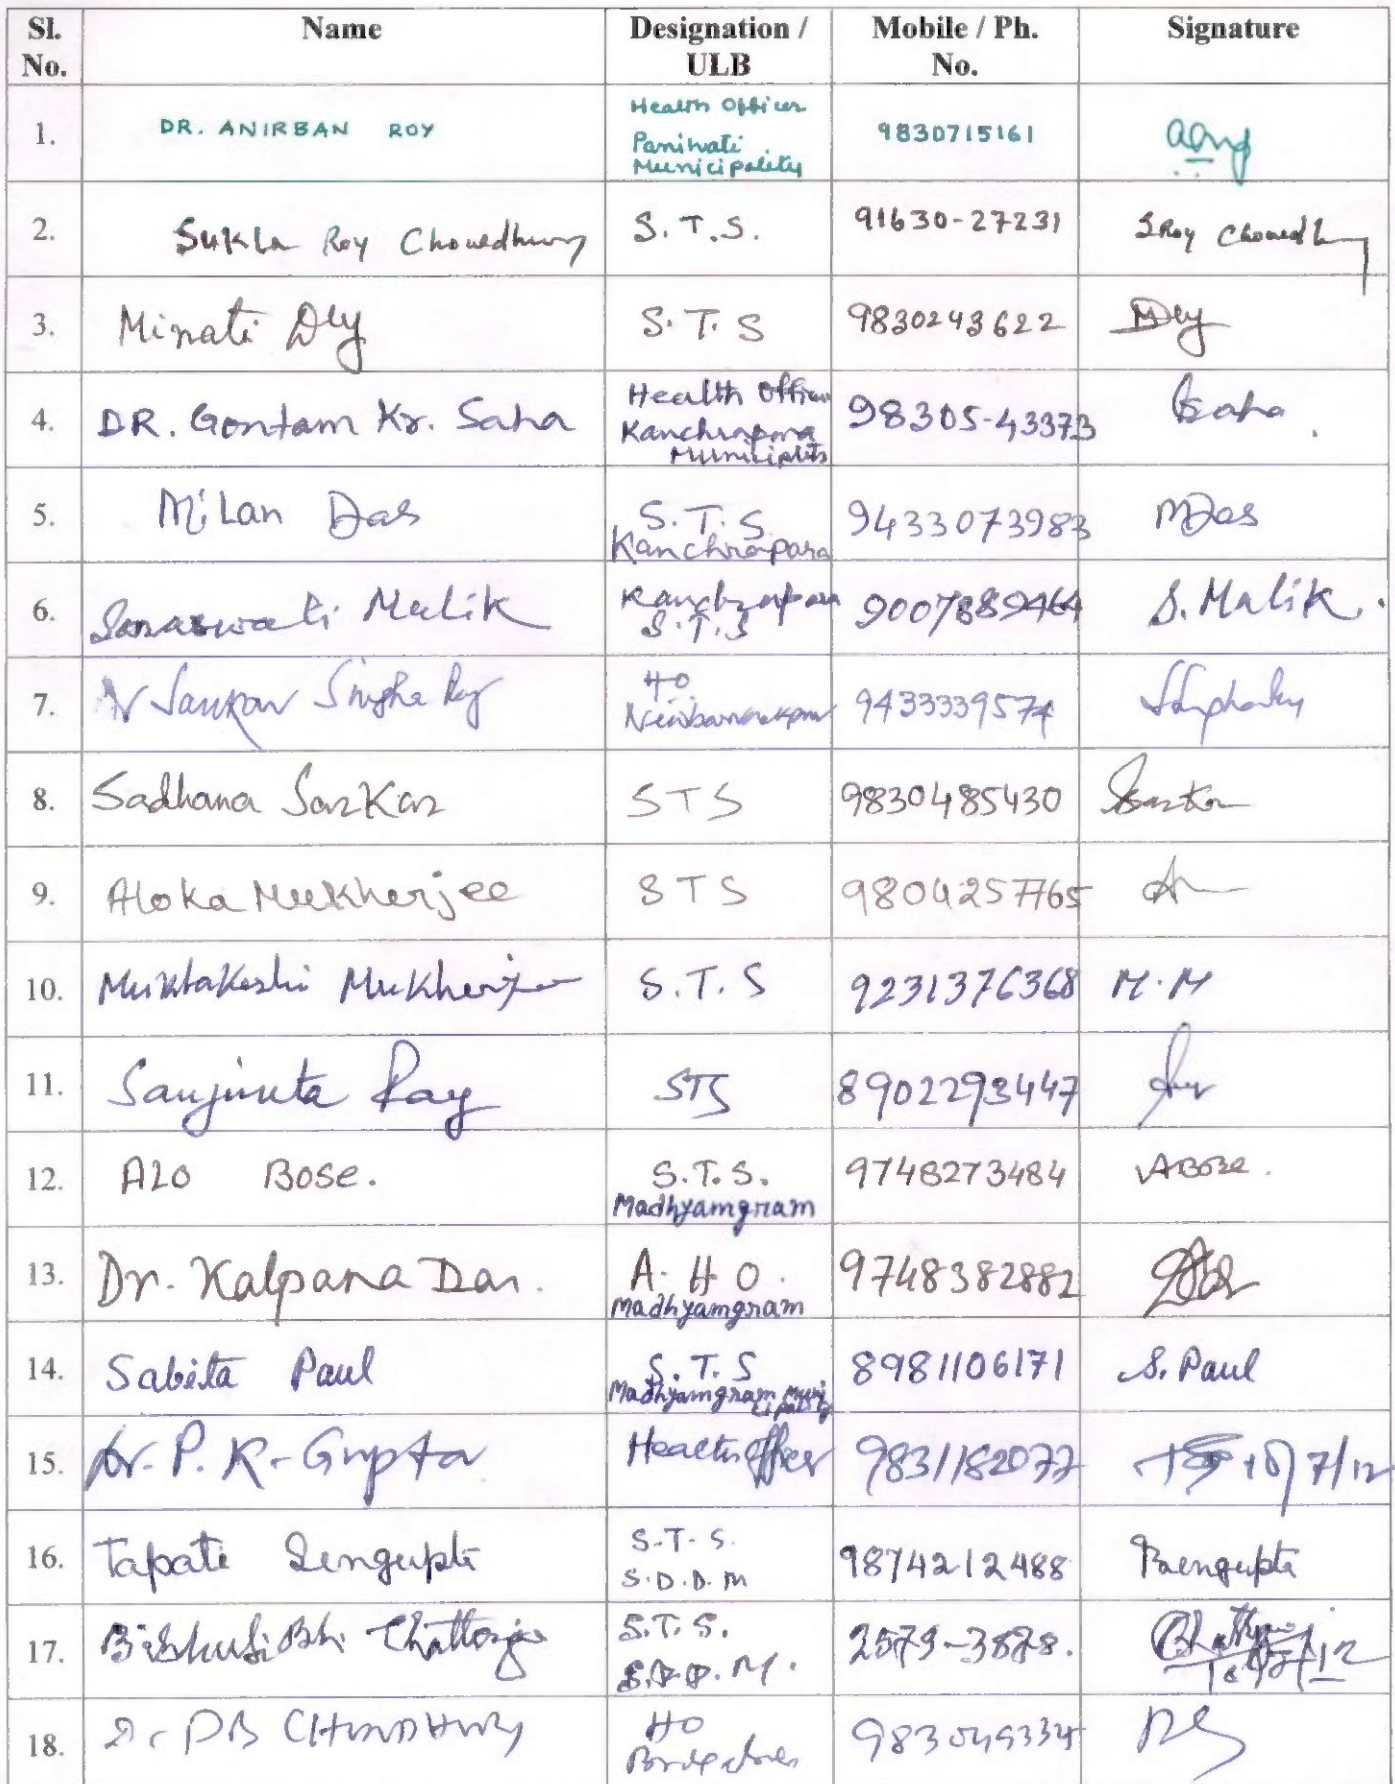 Sl. No. Name Designation / ULB Mobile / Ph. No. Signature
1. DR. ANIRBAN ROY Health Officer Panihati Municipality 9830715161
2. Sukla Roy Chowdhury S.T.S. 91630-27231 S Roy Chowdh
3. Minati Dey S.T.S 9830243622 MDey
4. DR. Goutam Kr. Saha Health Officer Kanchrapara Municipality 98305-43373 Saha
5. Milan Das S.T.S Kanchrapara 9433073983 MDas
6. Saraswati Malik Kanchrapara S.T.S S. Malik.
7. Dr Sankar Singha Roy HO 9433339574
8. Sadhana Sarkar STS 9830485430 Sarkar
9. Aloka Mukherjee STS 9804257765
10. Muktakeshi Mukherjee S.T.S 9231376368 M.M
11. Sanjukta Ray STS 8902293447
12. Alo Bose. S.T.S. Madhyamgram 9748273484 ABose.
13. Dr. Kalpana Das. A.H.O. Madhyamgram 9748382882
14. Sabita Paul S.T.S Madhyamgram Municipality 8981106171 S. Paul
15. Dr. P. K. Gupta Health Officer 9831182077 7/12
16. Tapati Sengupta S.T.S. S.D.D.M 9874212488 TSengupta
17. Chatterjee S.T.S. S.D.D.M. 2579-3828.
18. Dr PB CHOUDHURY HO